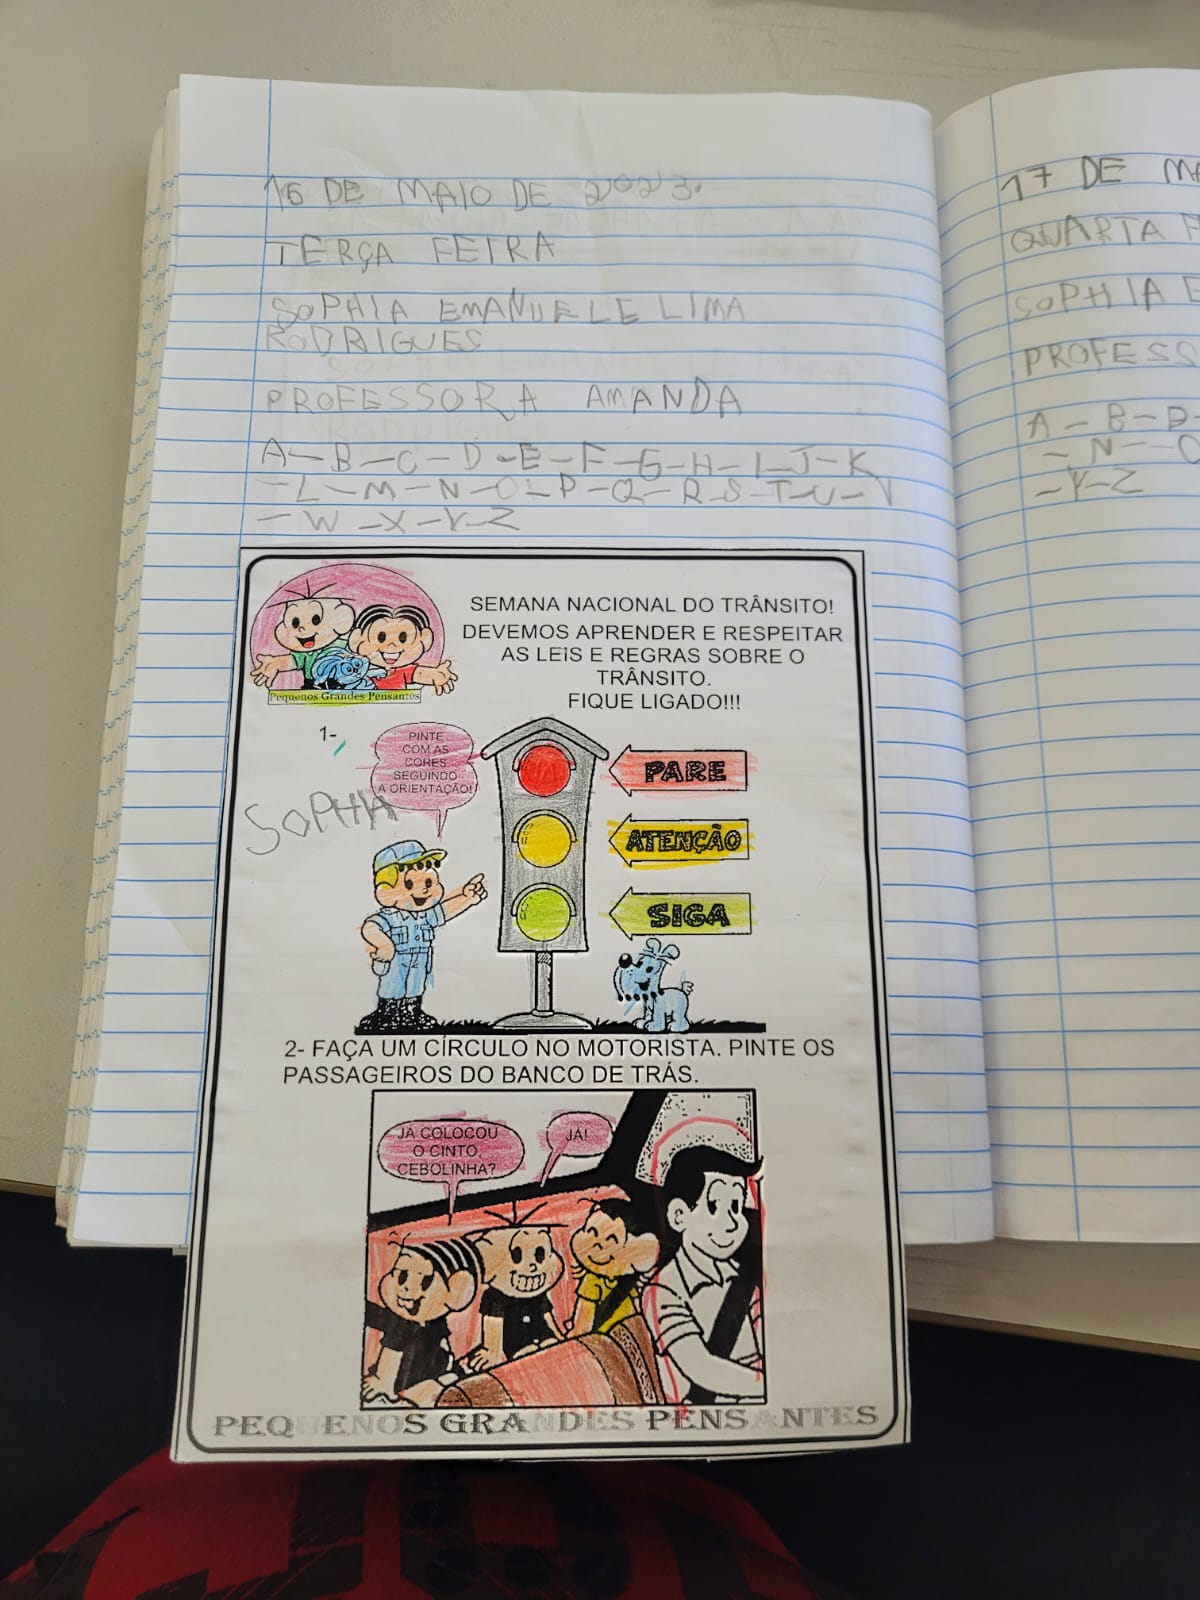 16 DE MAIO DE 2023.
TERÇA FEIRA
SOPHIA EMANUELE LIMA
RODRIGUES
PROFESSORA AMANDA
A-B-C-D-E-F-G-H-I-J-K
-L-M-N-O-P-Q-R-S-T-U-V
-W-X-Y-Z
SEMANA NACIONAL DO TRÂNSITO!
DEVEMOS APRENDER E RESPEITAR
AS LEIS E REGRAS SOBRE O
TRÂNSITO.
FIQUE LIGADO!!!
Pequenos Grandes Pensantes
1-
PINTE
COM AS
CORES
SEGUINDO
A ORIENTAÇÃO!
SOPHIA
PARE
ATENÇÃO
SIGA
2- FAÇA UM CÍRCULO NO MOTORISTA. PINTE OS
PASSAGEIROS DO BANCO DE TRÁS.
JÁ COLOCOU
O CINTO,
CEBOLINHA?
JÁ!
PEQUENOS GRANDES PENSANTES
17 DE MA
QUARTA F
SOPHIA E
PROFESS
A-B-D-
-N-O
-Y-Z